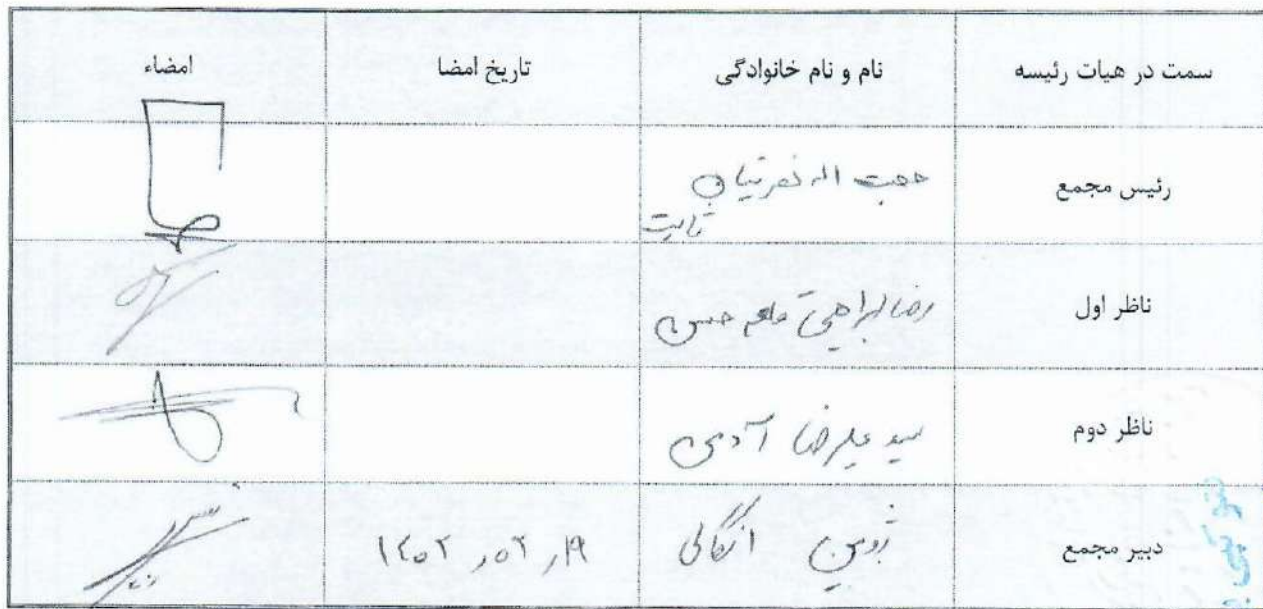 سمت در هیات رئیسه نام و نام خانوادگی تاریخ امضا امضاء
رئیس مجمع حجت اله نصرتیان
ثابت
ناظر اول رضا ابراهیمی قلعه حسن
ناظر دوم سید علیرضا آدمی
دبیر مجمع ژوبین ۱۴۰۲٫۰۲٫۱۹